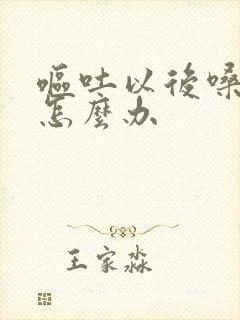 嘔吐以後嗓
怎麼办
王家淼